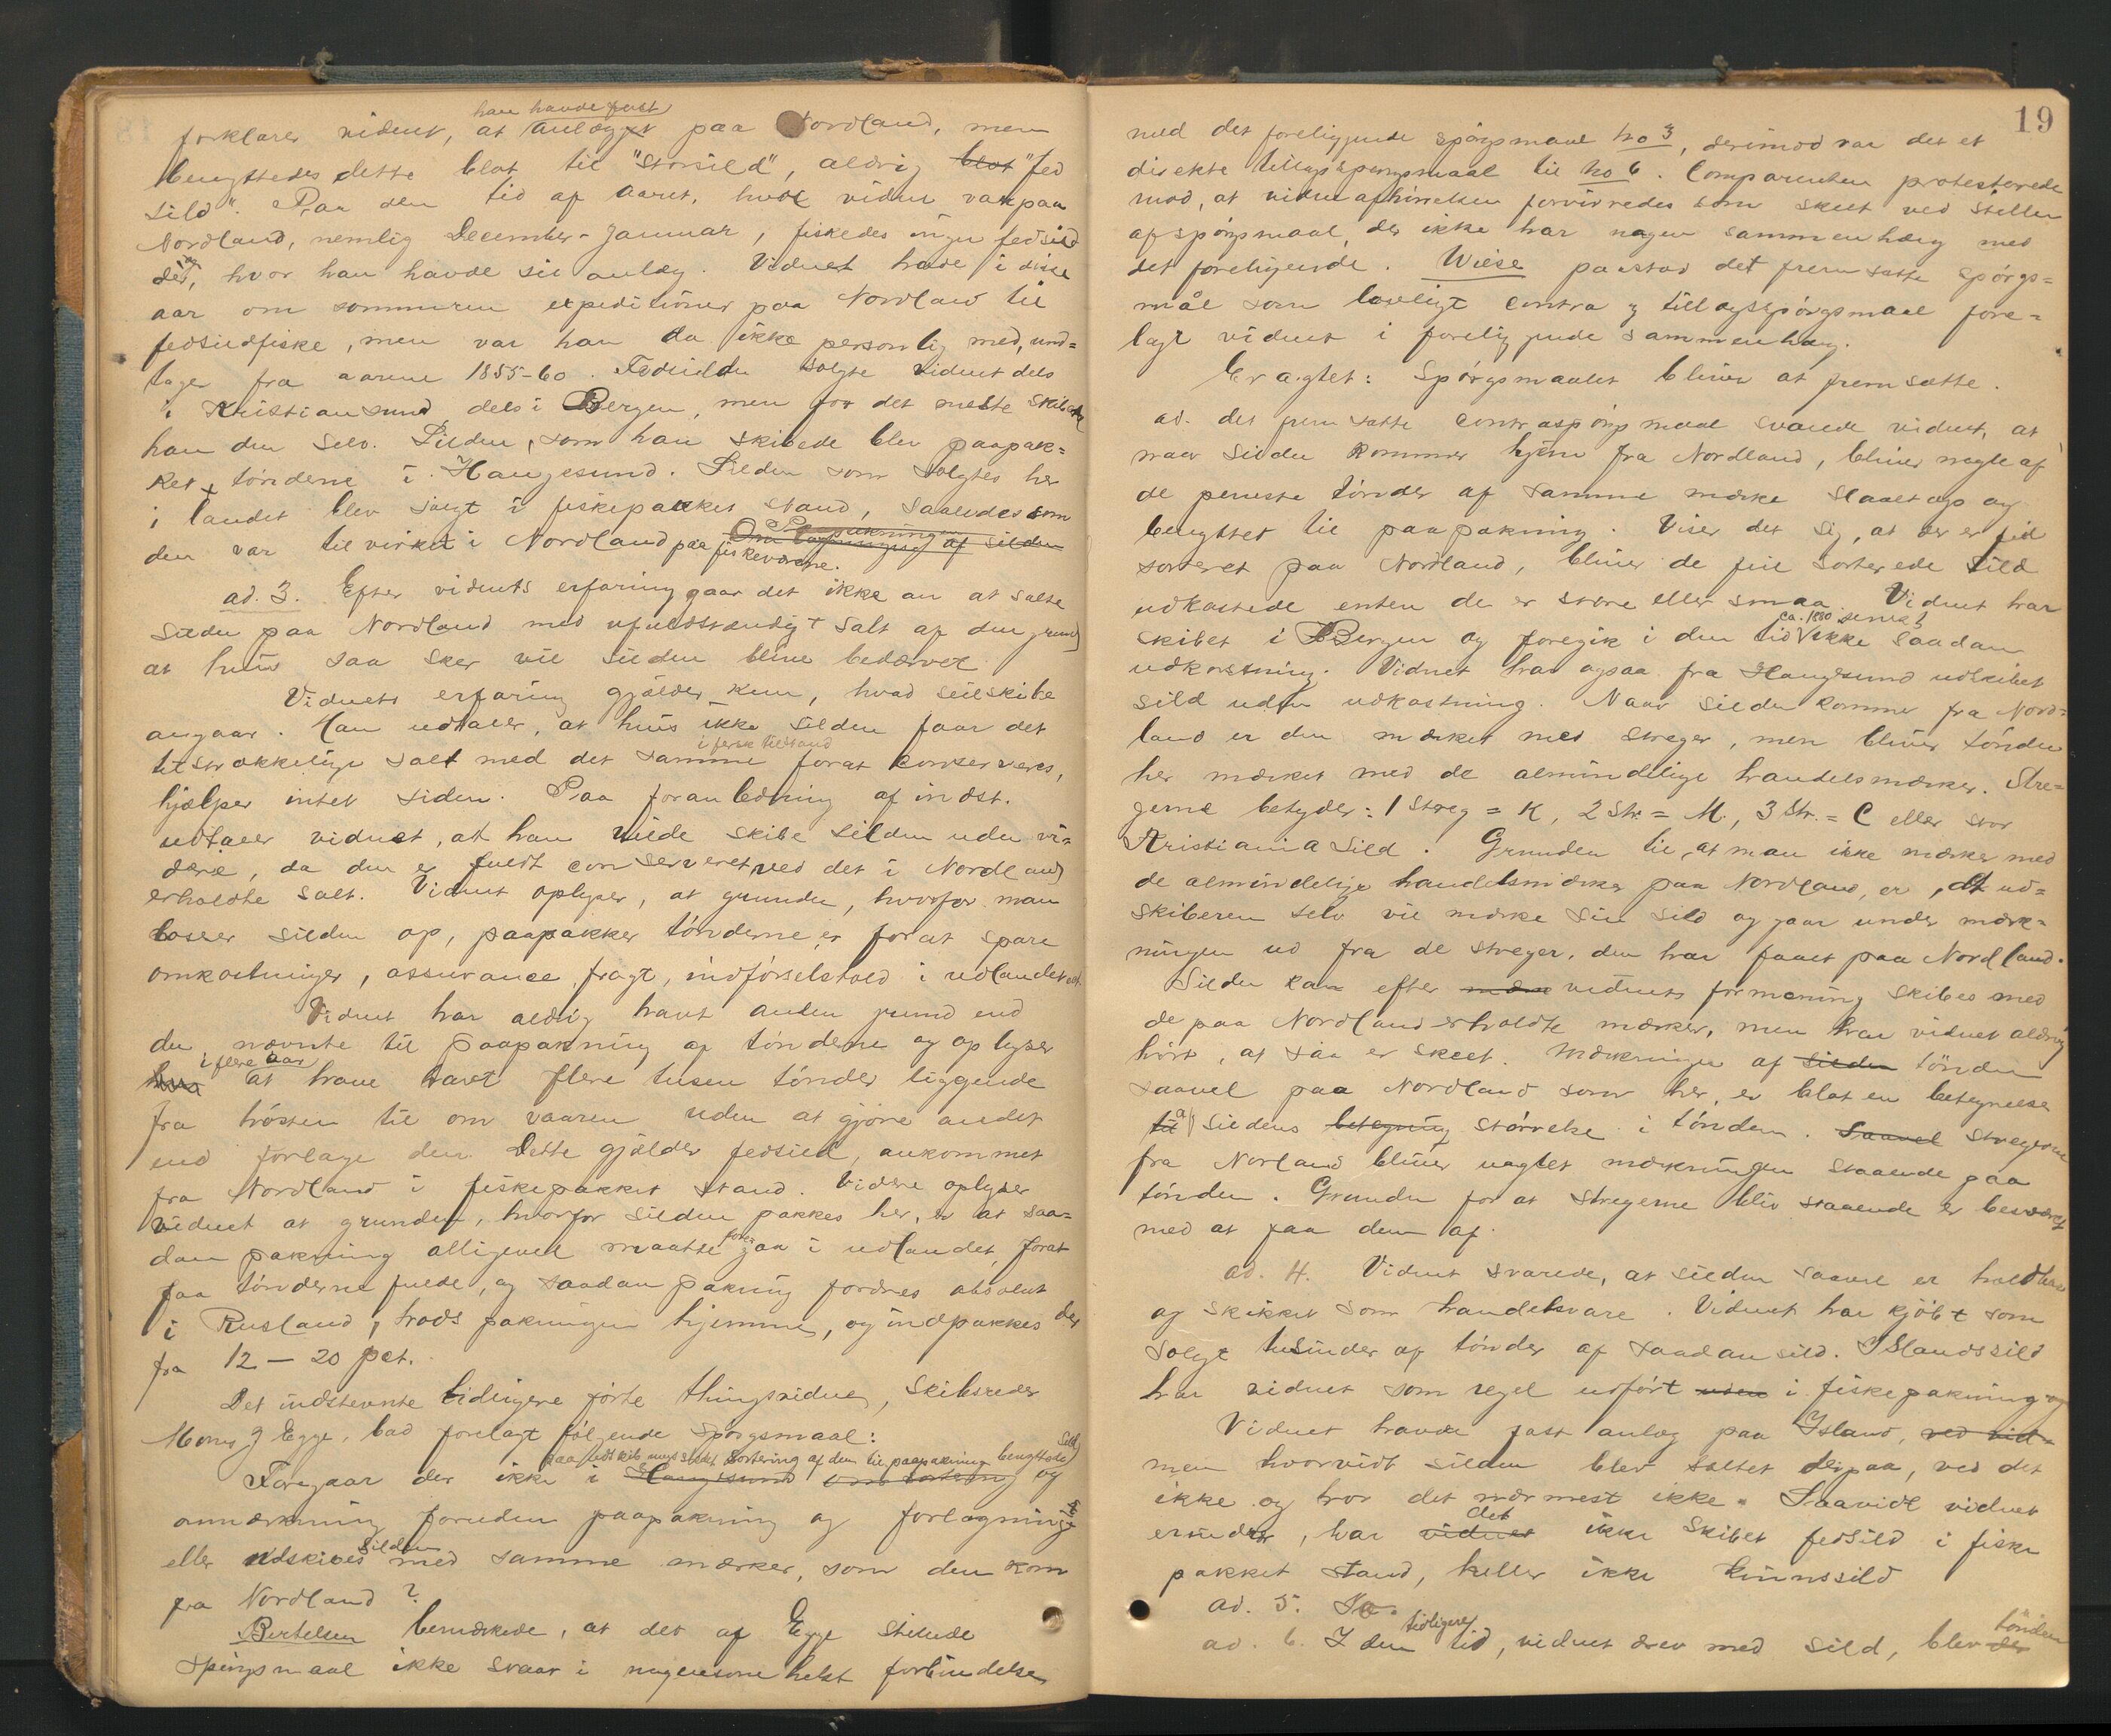 han havde fast
forklarer vidnet, at anlægget paa Nordland, men
benyttedes dette blot til "storsild", aldrig blot "fed
sild". Paa den tid af aaret, hvor vidnet var paa
Nordland, nemlig December-Januar, fiskedes ingen fedsild
der, hvor han havde sit anlæg. Vidnet havde i disse
aar om sommeren expeditioner paa Nordland til
fedsildfiske, men var han da ikke personlig med, und=
tagen fra aarene 1855-60. Fedsilden solgte vidnet dels
i Kristiansund dels i Bergen, men for det meste skibede
han den selv. Silden, som han skibede blev paapak=
ket tønderne i Haugesund. Silden som solgtes her
i landet blev solgt i fiskepakket stand, saaledes som
den var tilvirket i Nordland paa fiskeværene.
ad. 3. Efter vidnets erfaring gaar det ikke an at salte
silden paa Nordland med ufuldstændigt salt af den grund
at hvis saa sker vil silden blive bedærvet
Vidnets erfaring gjælder kun, hvad seilskibe
angaar. Han udtaler, at hvis ikke silden faar det
i fersk tilstand
tilstrækkelige salt med det samme forat konserveres,
hjælper intet siden. Paa foranledning af indst.
udtaler vidnet, at han vilde skibe silden uden vi=
dere, da den er fuldt conserveret ved det i Nordland
erholdte salt. Vidnet oplyser, at grunden, hvorfor man
losser silden op, paapakker tønderne er forat spare
omkostninger, assurance, fragt, indførselstold i udlandet
Vidnet har aldrig havt anden grund end
den nævnte til paapakning af tønderne og oplyser
i flere aar
at have havt flere tusen tønder liggende
fra høsten til om vaaren uden at gjøre andet
end forlage den. Dette gjælder fedsild, ankommet
fra Nordland i fiskepakket stand. Videre oplyser
vidnet at grunden, hvorfor silden pakkes her, er at saa=
dan pakning alligevel maatte foregaa i udlandet, forat
faa tønderne fulde, og saadan pakning fordres absolut
i Rusland, trods pakningen hjemme, og indpakkes der
fra 12 - 20 pct.
Det indstevnte tidligere førte thingsvidne, Skibsreder
Mons J Egge, bad forelagt følgende spørgsmaal:
paa udskibningsstedet sortering af den til paapakning benyttede Sild
Foregaar der ikke i Haugesund og
ommærkning foruden paapakning og forlagning
eller udskibes silden med samme mærker, som den kom
fra Nordland?
Bertelsen bemærkede, at det af Egge stillede
spørgsmaal ikke svaar i nogensomhelst forbindelse
19
med det foreliggende spørgsmaal no 3, derimod var det et
direkte tillægsspørgsmaal til no 6. Comparenten protesterede
mod, at vidneafhørelsen forvirredes som skeet ved stillen
af spørgsmaal, der ikke har nogen sammenhæng med
det foreliggende. Wiese paastod det fremsatte spørgs=
mål som lovligt contra og tillægsspørgsmaal fore=
lagt vidnet i foreliggende sammenhæng.
Eragtet: Spørgsmaalet bliver at fremsætte.
ad. det fremsatte contraspørgsmaal svarede vidnet, at
naar silden kommer hjem fra Nordland, bliver nogle af
de peneste tønder af samme mærke slaaet op og
benyttet til paapakning. Viser det sig, at der er feil
sorteret paa Nordland, bliver de feil sorterede sild
udkastede enten de er store eller smaa. Vidnet har
ca. 1880
skibet i Bergen og foregik i den tid ikke saadan
udkastning. Vidnet har ogsaa fra Haugesund udskibet
sild uden udkastning. Naar silden kommer fra Nord=
land er den mærket med streger, men bliver tønden
her mærket med de almindelige handelsmærker. Stre=
gerne betyder: 1 Streg = K, 2 Str. = M, 3 Str. = C eller stor
Kristiania Sild. Grunden til, at man ikke mærker med
de almindelige handelsmærker paa Nordland, er, at ud=
skiberen selv vil mærke sin sild og gaar under mærk=
ningen ud fra de streger, den har faaet paa Nordland.
Silden kan efter vidnets formening skibes med
de paa Nordland erholdte mærker, men har vidnet aldrig
hørt, at saa er skeet. Mærkningen af silden tønden
saavel paa Nordland som her, er blot en betegnelse
til af sildens betegning størrelse i tønden. Saavel stregerne
fra Norland bliver uagtet mærkningen staaende paa
tønden. Grunden for at stregerne bliv staaende er besværet
med at faa dem af.
ad. 4. Vidnet svarede, at silden saavel er holdbar
og skikket som handelsvare. Vidnet har kjøbt som
solgt tusinder af tønder af saadan sild. Islandssild
har vidnet som regel udført uden i fiskepakning og
Vidnet havde fast anlæg paa Island, ved vid-
men hvorvidt silden blev saltet derpaa, ved det
ikke og tror det nærmest ikke. Saavidt vidnet
det
erindrer, har vidnet ikke skibet fedsild i fiske
pakket stand, heller ikke
ad. 5. Ja.
tidligere tønden
ad. 6. I den tid, vidnet drev med sild, blev der